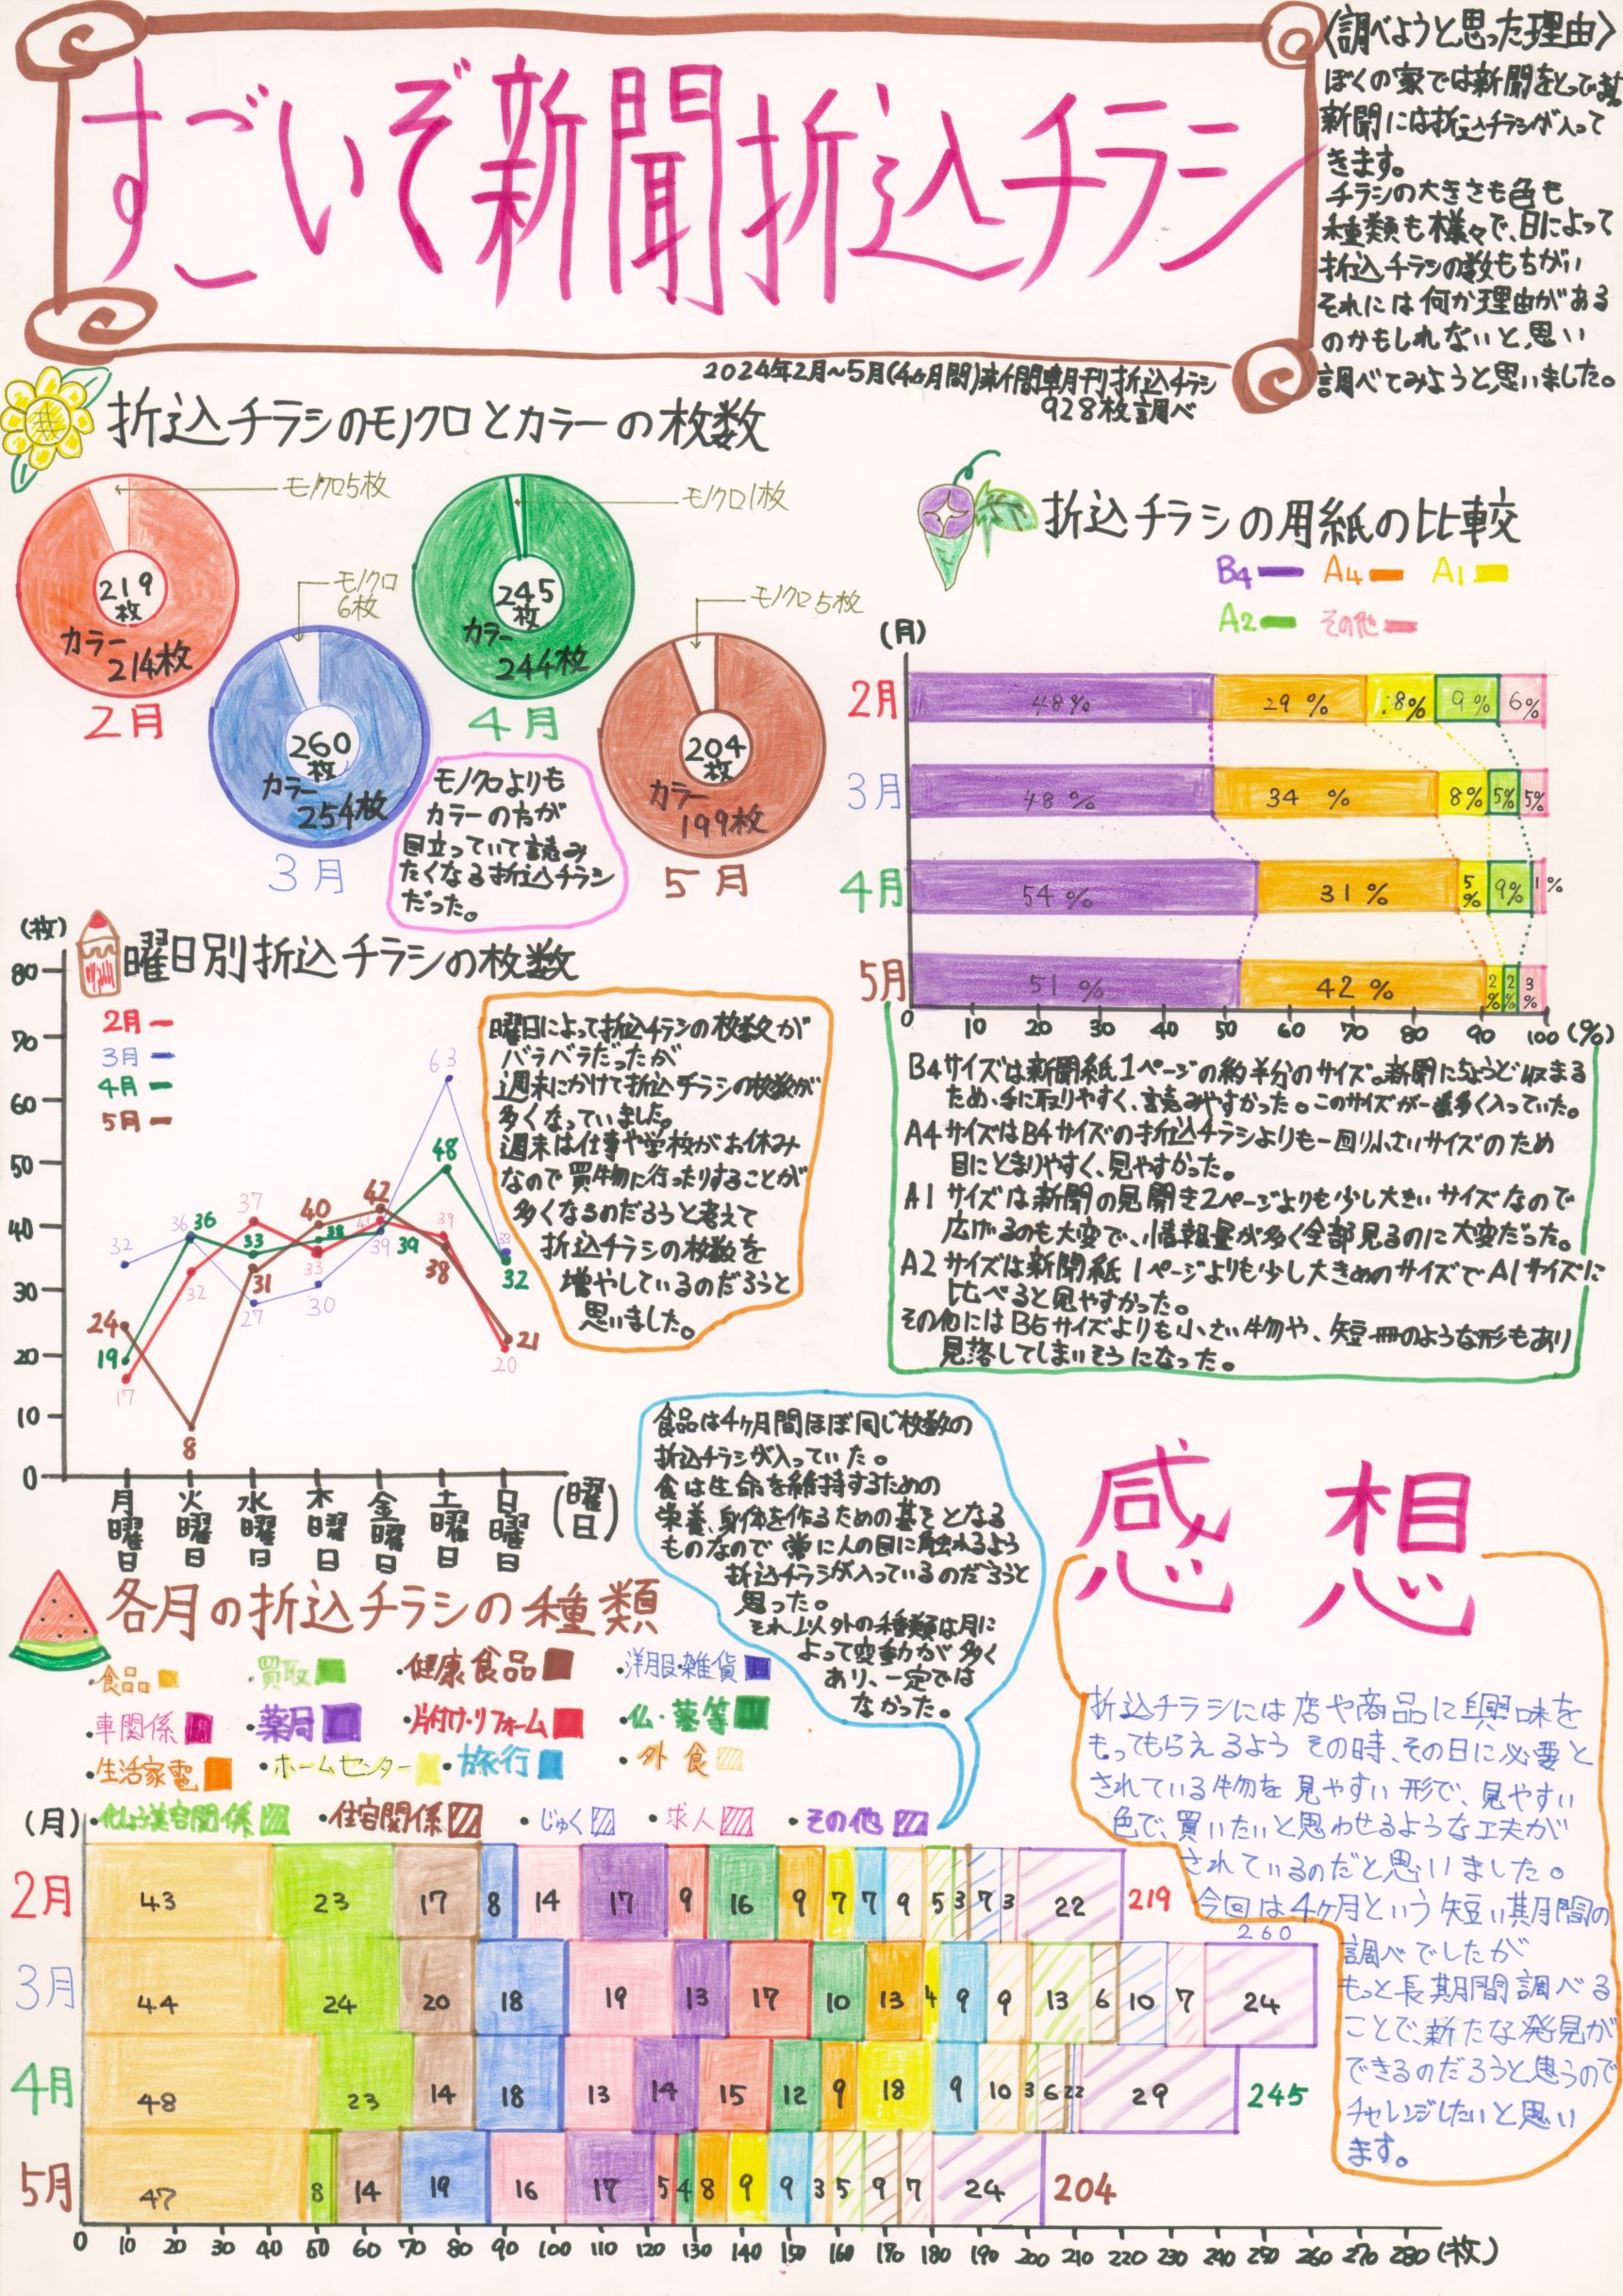 すごいぞ新聞折込チラシ
〈調べようと思った理由〉
ぼくの家では新聞をとってます
新聞には折込チラシが入って
きます。
チラシの大きさも色も
種類も様々で、日によって
折込チラシの数もちがい
それには何か理由がある
のかもしれないと思い
調べてみようと思いました。
2024年2月~5月(4ヶ月間)新聞朝刊折込チラシ
928枚調べ
折込チラシのモノクロとカラーの枚数
モノクロ5枚
219
枚
カラー
214枚
2月
モノクロ
6枚
260
枚
カラー
254枚
3月
モノクロ1枚
245
枚
カラー
244枚
4月
モノクロ5枚
204
枚
カラー
199枚
5月
モノクロよりも
カラーの方が
目立っていて読み
たくなる折込チラシ
だった。
折込チラシの用紙の比較
B4 A4 A1
A2 その他
(月)
2月 48% 29% 8% 9% 6%
3月 48% 34% 8% 5% 5%
4月 54% 31% 5% 9% 1%
5月 51% 42% 2% 2% 3%
0 10 20 30 40 50 60 70 80 90 100 (%)
B4サイズは新聞紙1ページの約半分のサイズ。新聞にちょうど収まる
ため、手に取りやすく、読みやすかった。このサイズが一番多く入っていた。
A4サイズはB4サイズの折込チラシよりも一回り小さいサイズのため
目にとまりやすく、見やすかった。
A1サイズは新聞の見開き2ページよりも少し大きいサイズなので
広げるのも大変で、情報量が多く全部見るのに大変だった。
A2サイズは新聞紙1ページよりも少し大きめのサイズでA1サイズに
比べると見やすかった。
その他にはB5サイズよりも小さい物や、短冊のような形もあり
見落してしまいそうになった。
曜日別折込チラシの枚数
(枚)
80
70
60
50
40
30
20
10
0
2月
3月
4月
5月
32 36 27 30 39 63 33
19 36 33 38 39 48 32
17 32 37 33 41 39 20
24 8 31 40 42 38 21
月曜日 火曜日 水曜日 木曜日 金曜日 土曜日 日曜日 (曜日)
曜日によって折込チラシの枚数が
バラバラだったが
週末にかけて折込チラシの枚数が
多くなっていました。
週末は仕事や学校がお休み
なので買物に行ったりすることが
多くなるのだろうと考えて
折込チラシの枚数を
増やしているのだろうと
思いました。
各月の折込チラシの種類
・食品 ・買取 ・健康食品 ・洋服・雑貨
・車関係 ・薬局 ・片付け・リフォーム ・仏・墓等
・生活家電 ・ホームセンター ・旅行 ・外食
・化しょう美容関係 ・住宅関係 ・じゅく ・求人 ・その他
(月)
2月 43 23 17 8 14 17 9 16 9 7 7 9 5 3 7 3 22 219
3月 44 24 20 18 19 13 17 10 13 4 9 9 13 6 10 7 24 260
4月 48 23 14 18 13 14 15 12 9 18 9 10 3 6 2 2 29 245
5月 47 8 14 19 16 17 5 4 8 9 9 3 5 9 7 24 204
0 10 20 30 40 50 60 70 80 90 100 110 120 130 140 150 160 170 180 190 200 210 220 230 240 250 260 270 280 (枚)
食品は4ヶ月間ほぼ同じ枚数の
折込チラシが入っていた。
食は生命を維持するための
栄養、身体を作るための基そとなる
ものなので常に人の目に触れるよう
折込チラシが入っているのだろうと
思った。
それ以外の種類は月に
よって変動がが多く
あり、一定では
なかった。
感想
折込チラシには店や商品に興味を
もってもらえるようその時、その日に必要と
されている物を見やすい形で、見やすい
色で、買いたいと思わせるような工夫が
されているのだと思いました。
今回は4ヶ月という短い期間の
調べでしたが
もっと長期間調べる
ことで、新たな発見が
できるのだろうと思うので
チャレンジしたいと思い
ます。